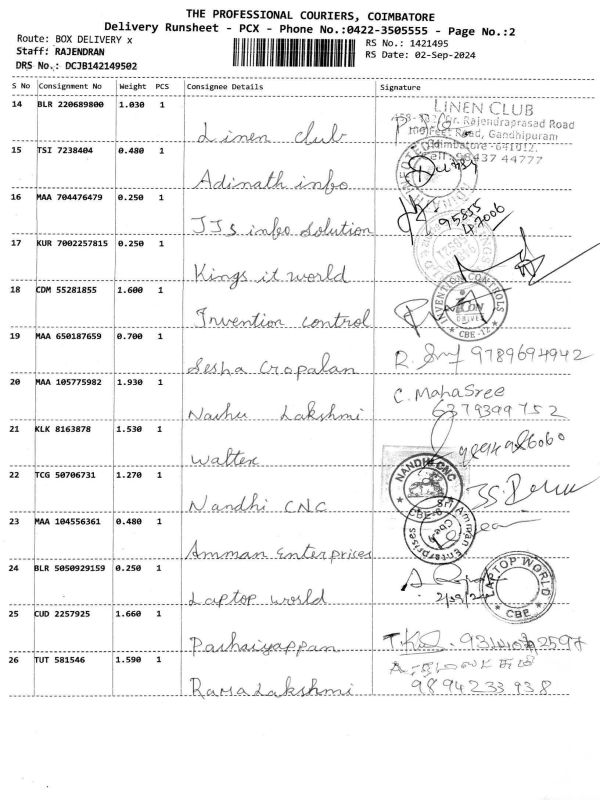 THE PROFESSIONAL COURIERS, COIMBATORE
Delivery Runsheet - PCX - Phone No.:0422-3505555 - Page No.:2
Route: BOX DELIVERY x
Staff: RAJENDRAN
DRS No.: DCJB142149502
RS No.: 1421495
RS Date: 02-Sep-2024
S No Consignment No Weight PCS Consignee Details Signature
14 BLR 220689800 1.030 1 Linen club
LINEN CLUB
Rajendraprasad Road
100 Feet Road, Gandhipuram
Coimbatore - 641012.
98437 44777
15 TSI 7238404 0.480 1 Adinath info
16 MAA 704476479 0.250 1 JJs info solution
95855
47006
17 KUR 7002257815 0.250 1 Kings it world
18 CDM 55281855 1.600 1 Invention control
INVENTION CONTROLS
* CBE-12 *
19 MAA 650187659 0.700 1 Sesha Gopalan
R. 9789694942
20 MAA 105775982 1.930 1 Nachu Lakshmi
C. MahaSree
6379399752
21 KLK 8163878 1.530 1 Walter
22 TCG 50706731 1.270 1 Nandhi CNC
NANDHI CNC
23 MAA 104556361 0.480 1 Amman Enterprises
Sri Amman Enterprises
24 BLR 5050929159 0.250 1 Laptop world
LAPTOP WORLD
* CBE *
25 CUD 2257925 1.660 1 Pachaiyappan
26 TUT 581546 1.590 1 Rama Lakshmi
9894233938